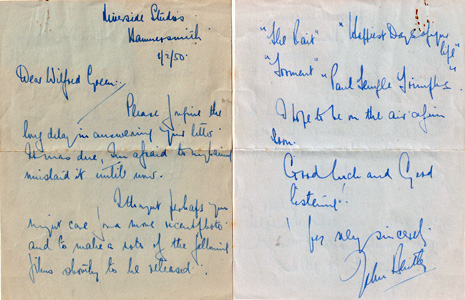 Riverside Studios
Hammersmith
2/2/50.
Dear Wilfred Green,
Please forgive the
long delay in answering your letter.
It was due, I'm afraid to my having
mislaid it until now.
I thought perhaps you
might care for a more recent photo
and to make a note of the following
films shortly to be released.
"The Bait" "Happiest Days of your
life"
"Torment" "Paul Temple Triumphs".
I hope to be on the air again
soon.
Good luck and Good
listening!
Yours very sincerely
John Bentley